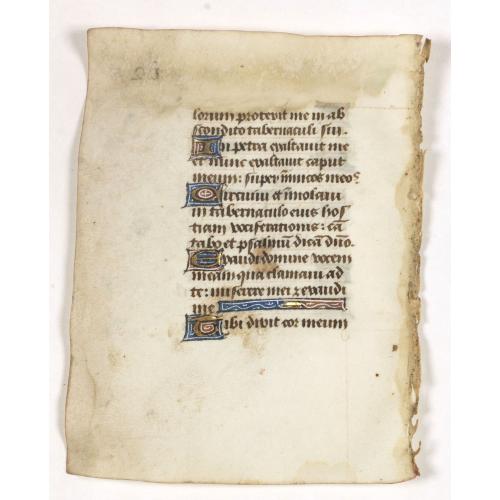 lorum protexit me in ab
scondito tabernaculi sui.
In petra exaltavit me
et nunc exaltavit caput
meum: super inimicos meos
Circuivi et immolavi
in tabernaculo eius hos
tiam vociferationis: cã
tabo et psalmũ dicã dño.
Exaudi domine vocem
meam qua clamavi ad
te: miserere mei ⁊ exaudi
me
Tibi dixit cor meum